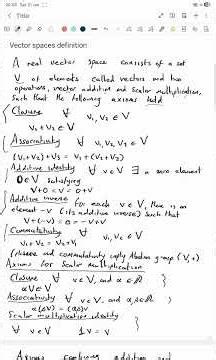 Title
Vector spaces definition
A real vector space consists of a set
V of elements called vectors and two
operations, vector addition and scalar multiplication,
such that the following axioms hold
Closure ∀ v₁, v₂ ∈ V
v₁ + v₂ ∈ V
Associativity ∀ v₁, v₂, v₃ ∈ V
(v₁+v₂)+v₃ = v₁+(v₂+v₃)
Additive identity ∀ v ∈ V ∃ a zero element
0 ∈ V satisfying
v+0 = v = 0+v
Additive inverse for each v ∈ V, there is an
element -v (its additive inverse) such that
v+(-v) = 0 = -v+v
Commutativity ∀ v₁, v₂ ∈ V
v₁+v₂ = v₂+v₁
Closure and commutativity imply Abelian group (V,+)
Axioms for Scalar Multiplication
Closure ∀ v ∈ V, and α ∈ ℝ
αv ∈ V
Associativity ∀ v ∈ V, and α, β ∈ ℝ
α(βv) = (αβ)v
Scalar multiplication identity
∀ v ∈ V 1v = v
Axioms combining addition and